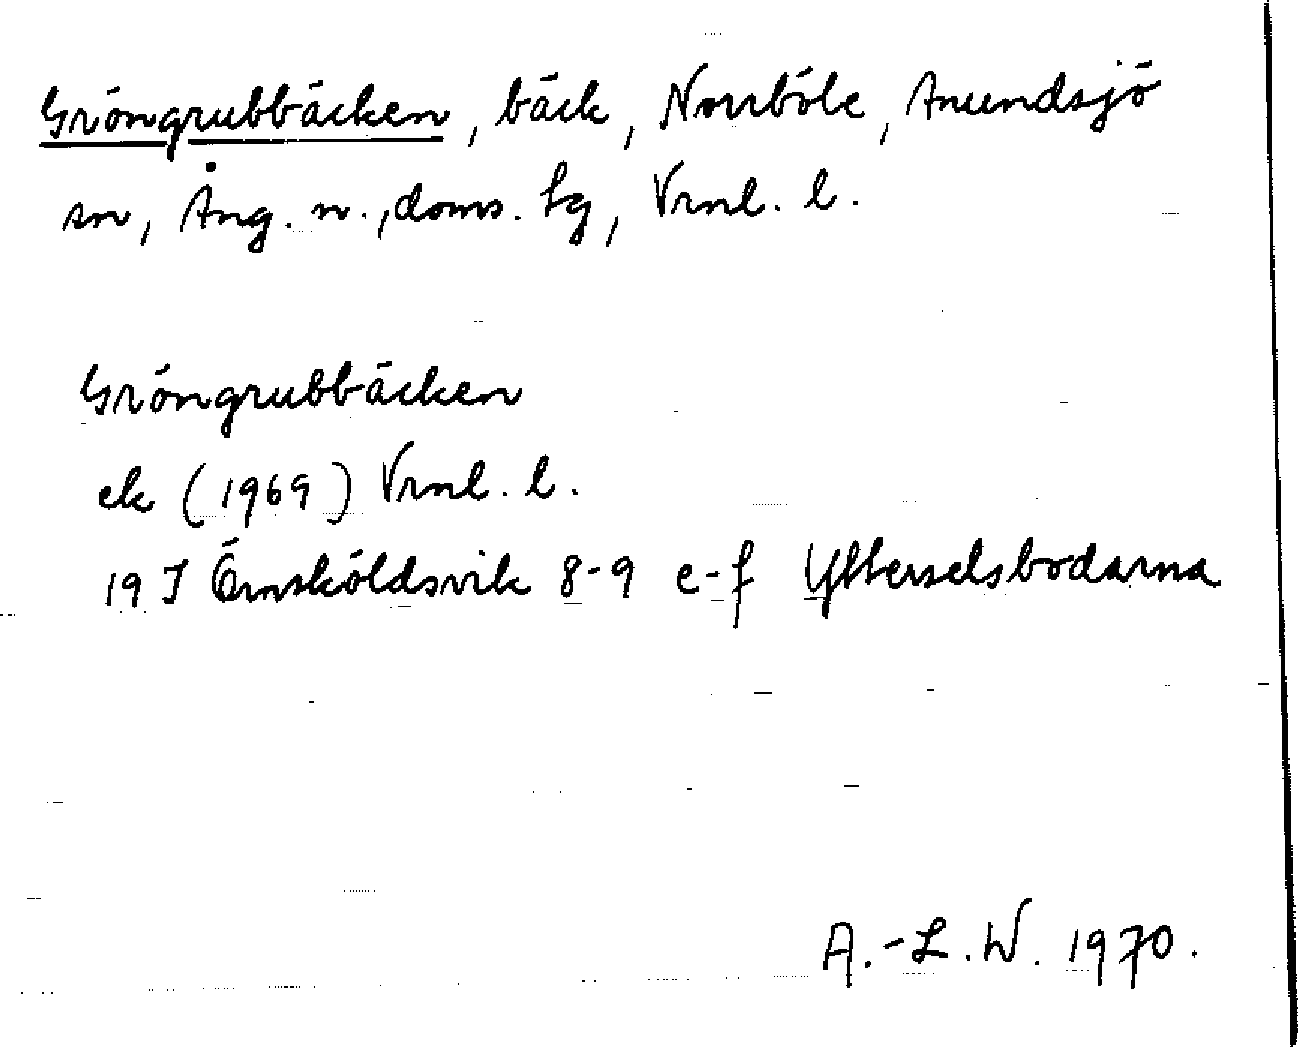 Gröngrubbäcken, bäck, Norrböle, Anundsjö
sn, Ång. n., doms. tg, Vrnl. l.
Gröngrubbäcken
ek (1969) Vrnl. l.
19 J Örnsköldsvik 8-9 e-f Ytterselsbodarna
A.-L.W. 1970.